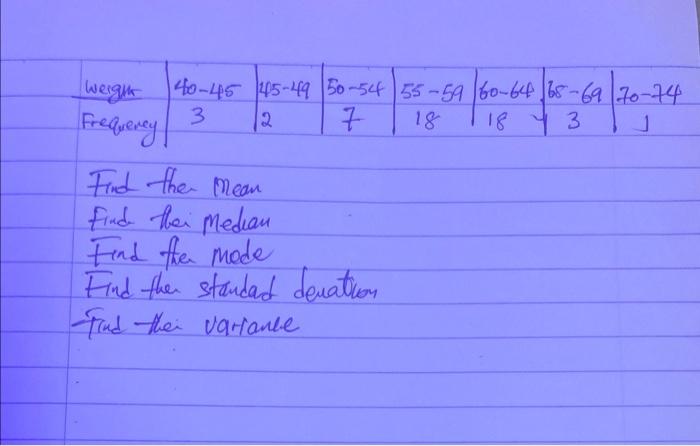 Weight 40-45 45-49 50-54 55-59 60-64 65-69 70-74
Frequency 3 2 7 18 18 3 1
Find the mean
Find the Median
Find the mode
Find the standad deviation
Find the variance